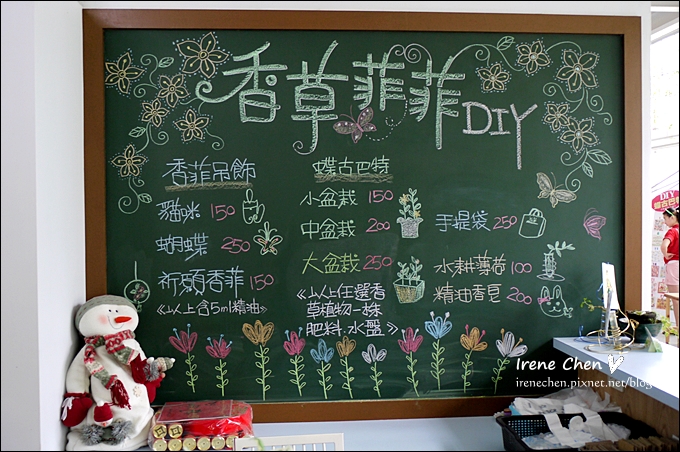 香草菲菲DIY
香菲吊飾
貓咪 150
蝴蝶 250
祈願香菲 150
《以上含5ml精油》
蝶古巴特
小盆栽 150
中盆栽 200
大盆栽 250
《以上任選香
草植物一株
肥料.水盤》
手提袋 250
水耕薄荷 100
精油香豆 200
DIY
Irene Chen
irenechen.pixnet.net/blog